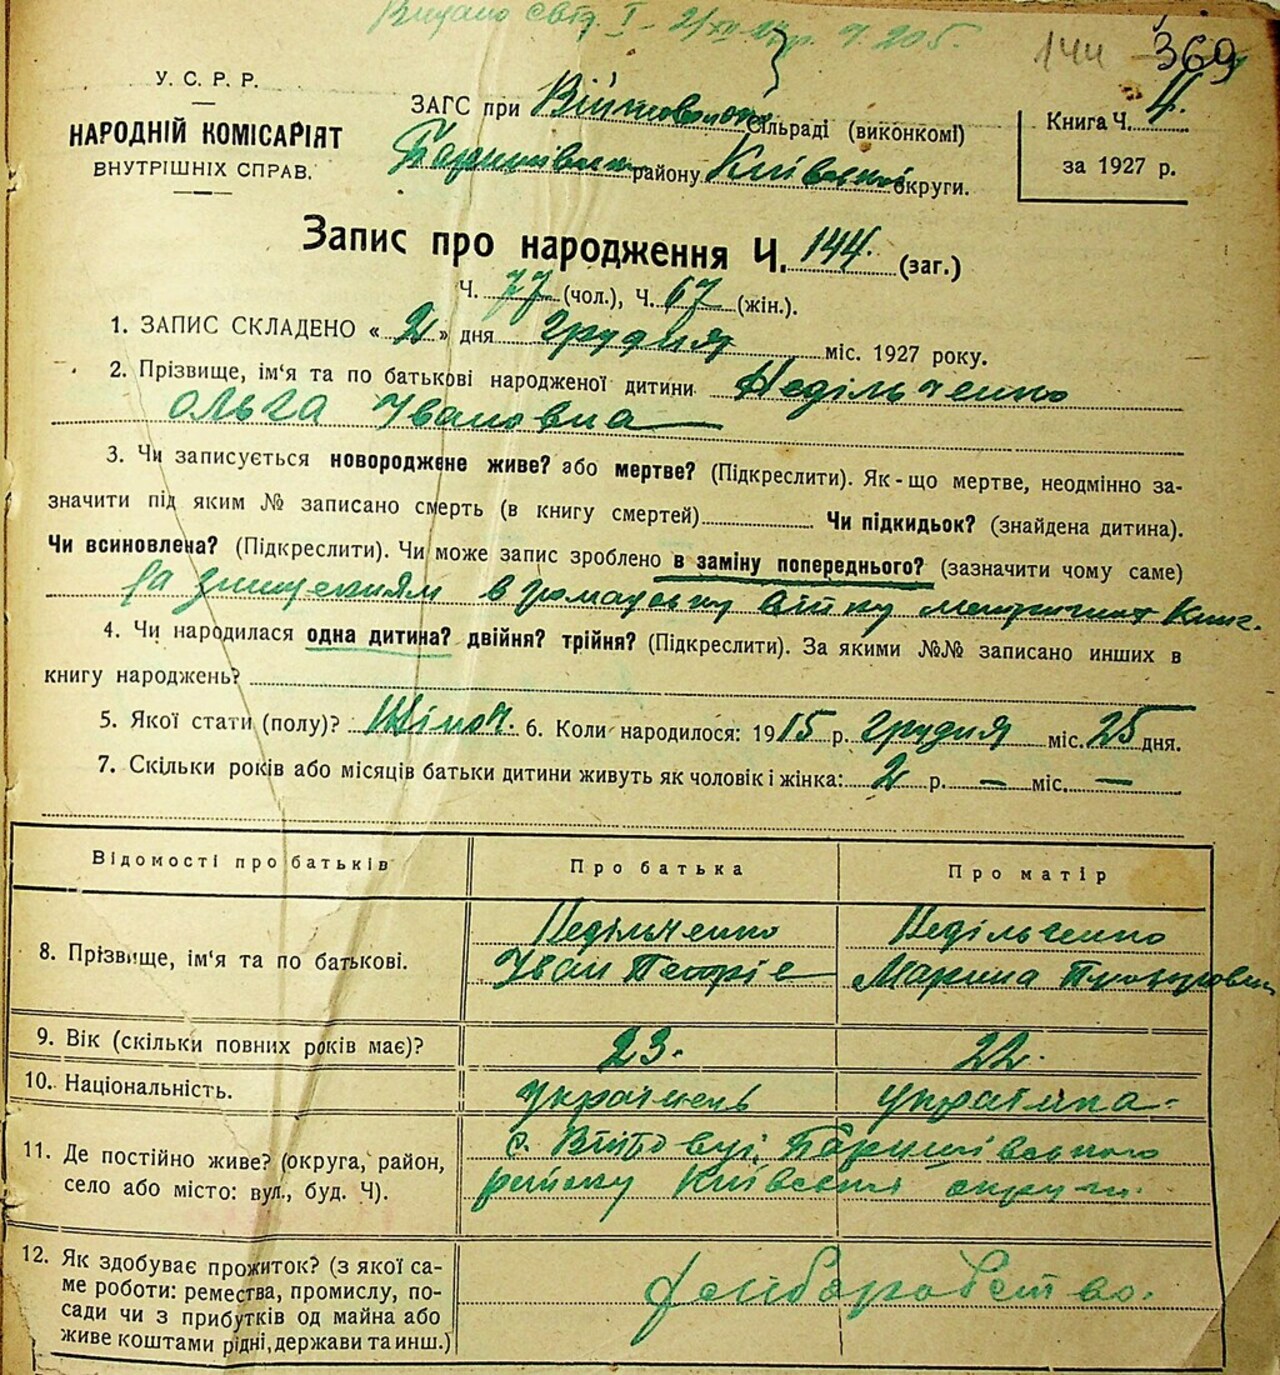 Видано свід. I - 2/XII-27 р. Ч. 205.
144 369
У. С. Р. Р.
НАРОДНІЙ КОМІСАРІЯТ
ВНУТРІШНІХ СПРАВ.
ЗАГС при Війтовській сільраді (виконкомі)
Баришівськ. району Київської округи.
Книга Ч. 4.
за 1927 р.
Запис про народження Ч. 144. (заг.)
Ч. 77 (чол.), Ч. 67 (жін.).
1. ЗАПИС СКЛАДЕНО « 2 » дня грудня міс. 1927 року.
2. Прізвище, ім'я та по батькові народженої дитини Недільченко
Ольга Івановна
3. Чи записується новороджене живе? або мертве? (Підкреслити). Як-що мертве, неодмінно за-
значити під яким № записано смерть (в книгу смертей) Чи підкидьок? (знайдена дитина).
Чи всиновлена? (Підкреслити). Чи може запис зроблено в заміну попереднього? (зазначити чому саме)
За знищенням в громадську війну метричних книг.
4. Чи народилася одна дитина? двійня? трійня? (Підкреслити). За якими №№ записано инших в
книгу народжень?
5. Якої стати (полу)? Жіноч. 6. Коли народилося: 1915 р. грудня міс. 25 дня.
7. Скільки років або місяців батьки дитини живуть як чоловік і жінка: 2 р. — міс. —
Відомості про батьків Про батька Про матір
8. Прізвище, ім'я та по батькові.
Недільченко Недільченко
Іван Петрів Марина Прокоровна
9. Вік (скільки повних років має)? 23. 22.
10. Національність. українець українка
11. Де постійно живе? (округа, район,
село або місто: вул., буд. Ч).
с. Війтовці, Баришівського
району Київської округи.
12. Як здобуває прожиток? (з якої са-
ме роботи: ремества, промислу, по-
сади чи з прибутків од майна або
живе коштами рідні, держави та инш.)
хліборобство.